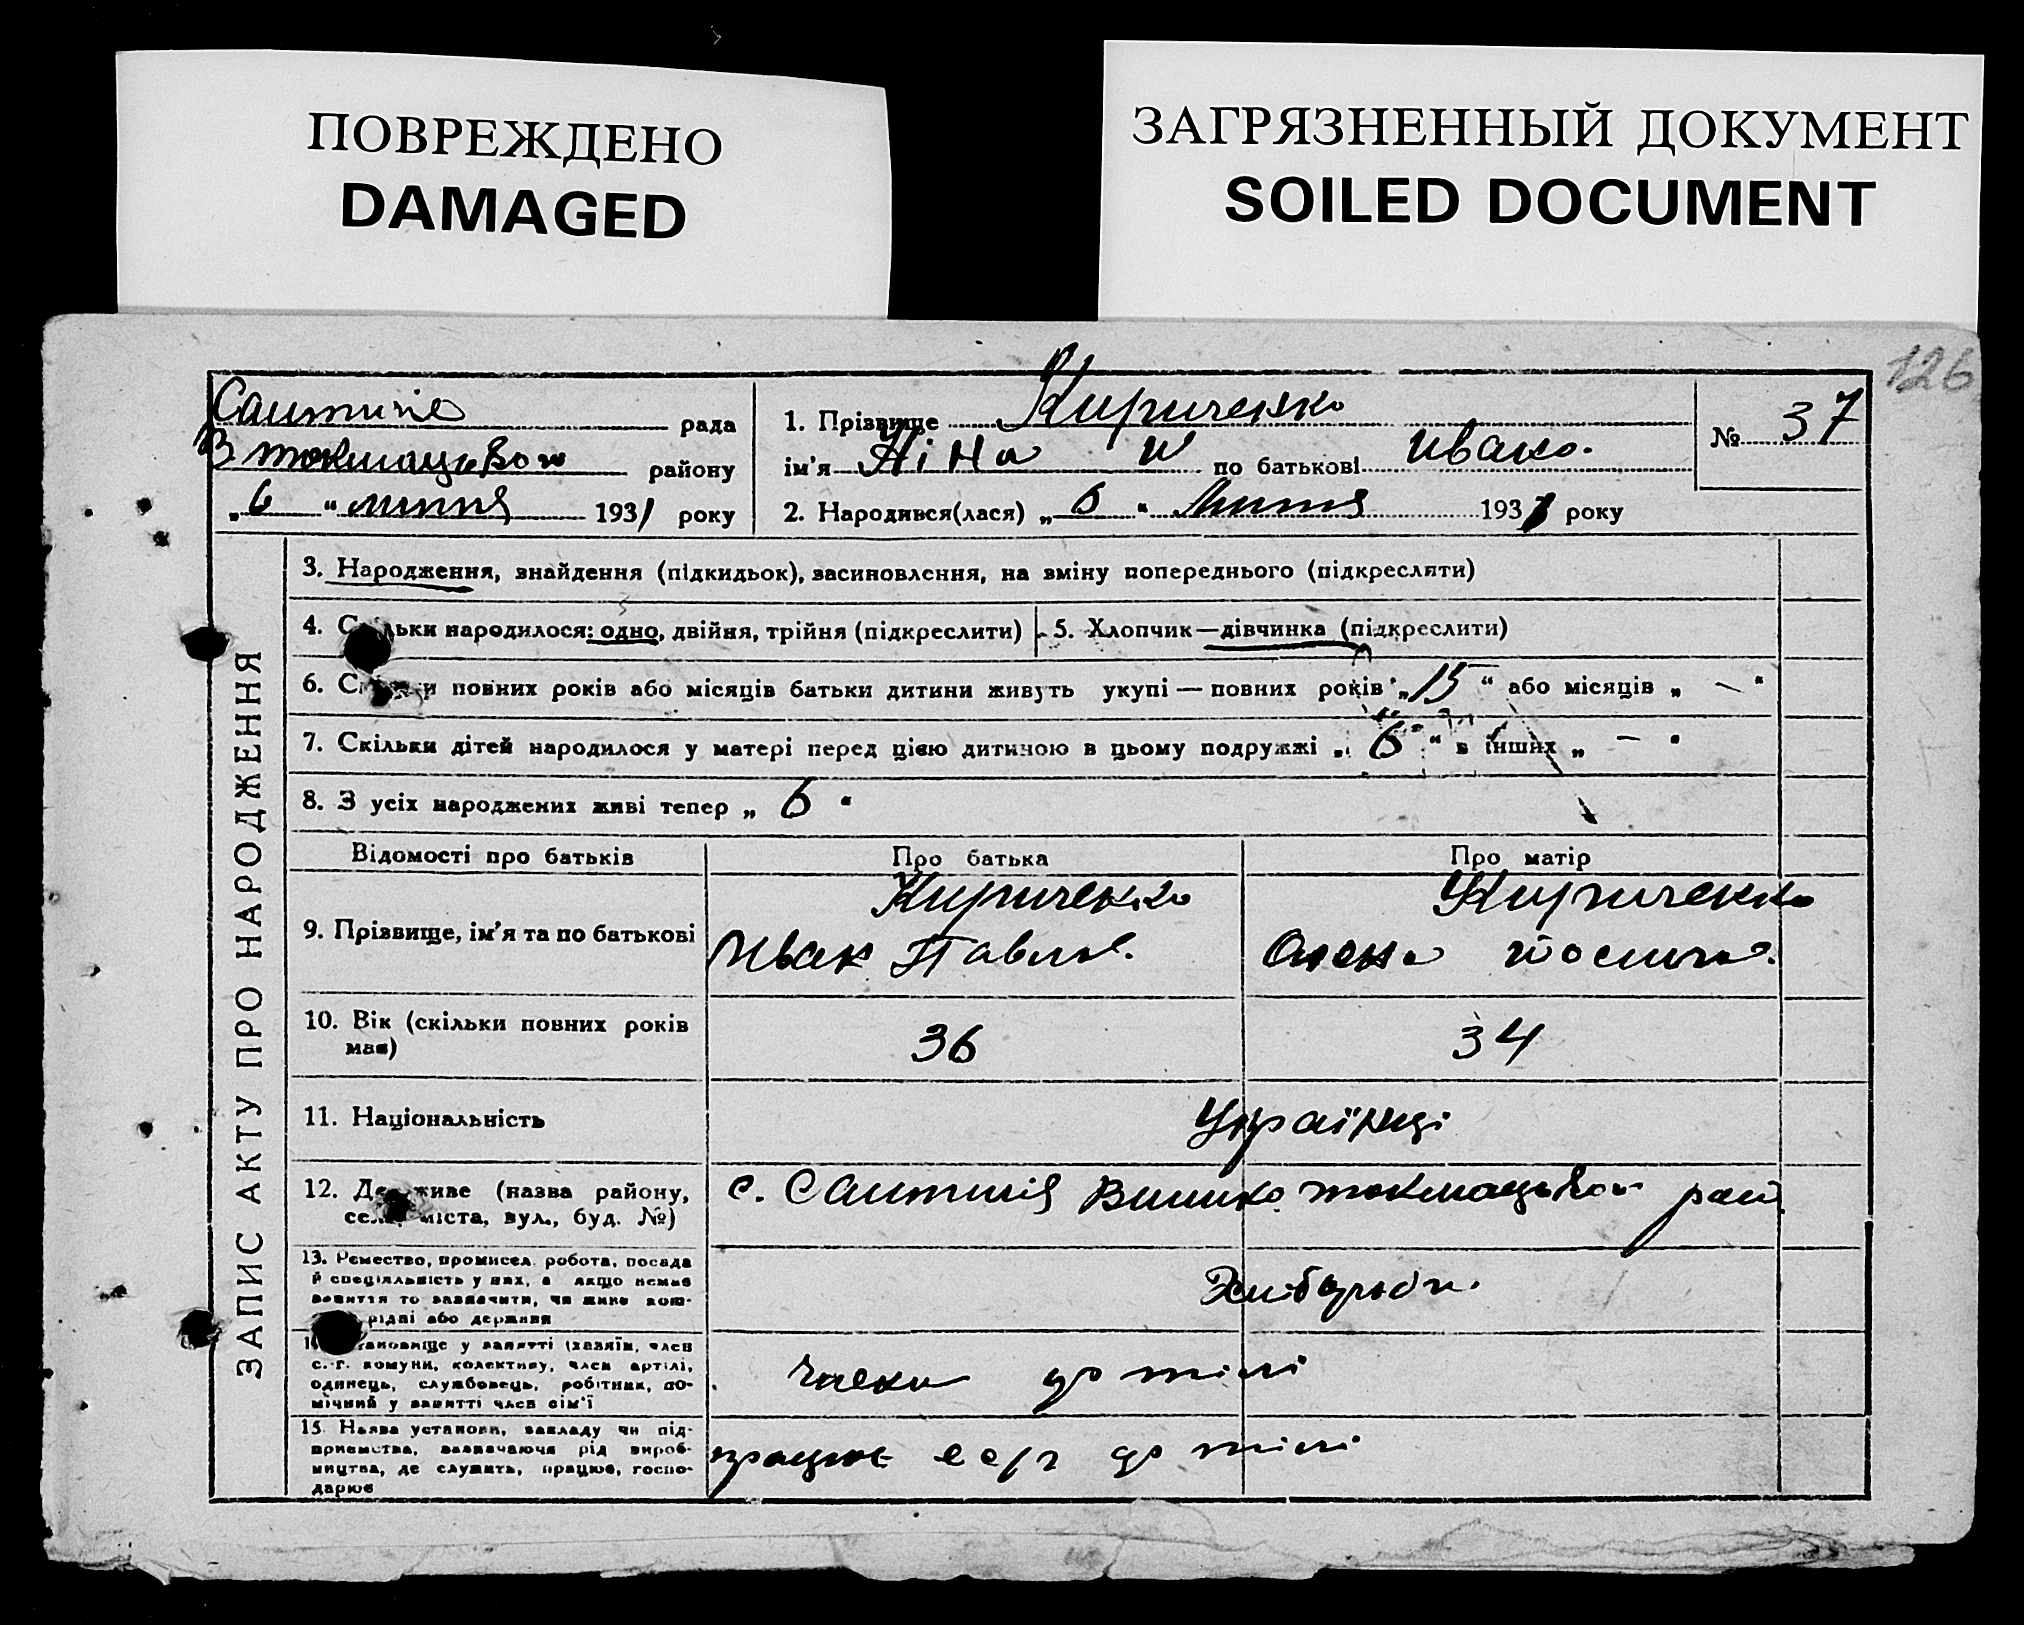 ПОВРЕЖДЕНО
DAMAGED
ЗАГРЯЗНЕННЫЙ ДОКУМЕНТ
SOILED DOCUMENT
126
рада
В токмацьком району
„6“ липня 1931 року
1. Прізвище Кириченко
ім'я Ніна по батькові Ивано.
2. Народився(лася) „6“ Липня 1931 року
№ 37
ЗАПИС АКТУ ПРО НАРОДЖЕННЯ
3. Народження, знайдення (підкидьок), засиновлення, на зміну попереднього (підкреслити)
4. Скільки народилося: одно, двійня, трійня (підкреслити)
5. Хлопчик—дівчинка (підкреслити)
6. Скільки повних років або місяців батьки дитини живуть укупі — повних років „15“ або місяців „—“
7. Скільки дітей народилося у матері перед цією дитиною в цьому подружжі „6“ в інших „—“
8. З усіх народжених живі тепер „6“
Відомості про батьків
Про батька
Про матір
9. Прізвище, ім'я та по батькові
Кириченко
Иван Павлов.
Кириченко
Олена
10. Вік (скільки повних років
має)
36
34
11. Національність
Українці
12. Де живе (назва району,
села, міста, вул., буд. №)
с. токмацьком рай.
13. Ремество, промисел, робота, посада
й спеціяльність у них, а якщо немає
заняття то зазначити, чи живе кош-
рідні або держава
Хлібороби.
14. Становище у занятті (хазяїн, член
с.-г. комуни, колективу, член артілі,
одинець, службовець, робітник, по-
мічний у занятті член сім'ї
члени артілі
15. Назва установи, закладу чи під-
приємства, зазначаючи рід вироб-
ництва, де служить, працює, госпо-
дарює
працює с/г артілі